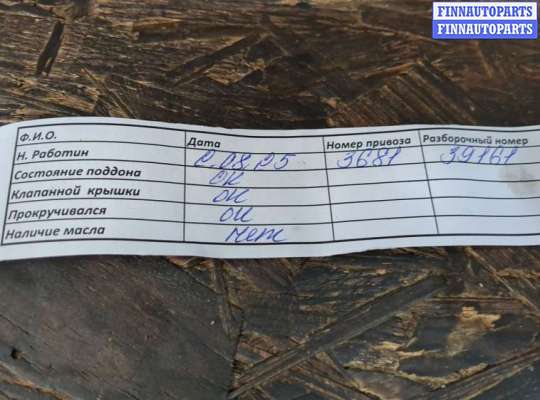 FINNAUTOPARTS
FINNAUTOPARTS
Ф.И.О. Дата Номер привоза Разборочный номер
Н. Работин 2.08.25 3681 39161
Состояние поддона ок
Клапанной крышки ок
Прокручивался ок
Наличие масла нет